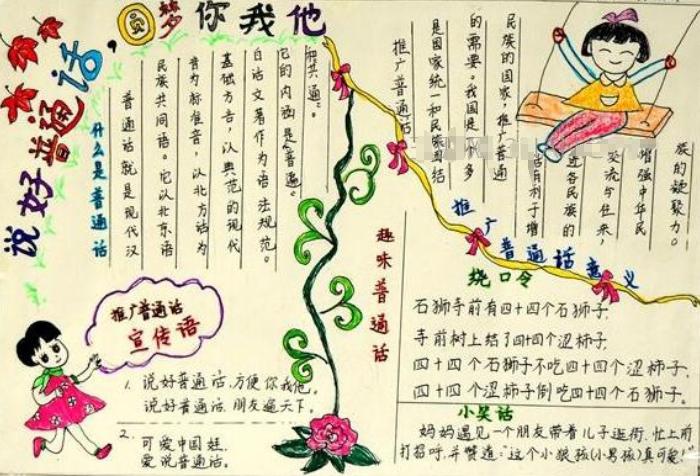 说好普通话，圆梦你我他
什么是普通话
普通话就是现代汉
民族共同语。它以北京语
音为标准音，以北方话为
基础方言，以典范的现代
白话文著作为语法规范。
它的内涵是“普遍”
和“共通”。
推广普通话
是国家统一和民族团结
的需要。我国是多
民族的国家，推广普通
有利于增
进各民族的
交流与往来，
增强中华民
族的凝聚力。
推广普通话意义
推广普通话
宣传语
1、说好普通话，方便你我他。
说好普通话，朋友遍天下。
2、可爱中国娃，
爱说普通话。
趣味普通话
绕口令
石狮寺前有四十四个石狮子，
寺前树上结了四十四个涩柿子，
四十四个石狮子不吃四十四个涩柿子，
四十四个涩柿子倒吃四十四个石狮子。
小笑话
妈妈遇见一个朋友带着儿子逛街，忙上前
打招呼，并赞道：“这个小狼孩(小男孩)真可爱！”